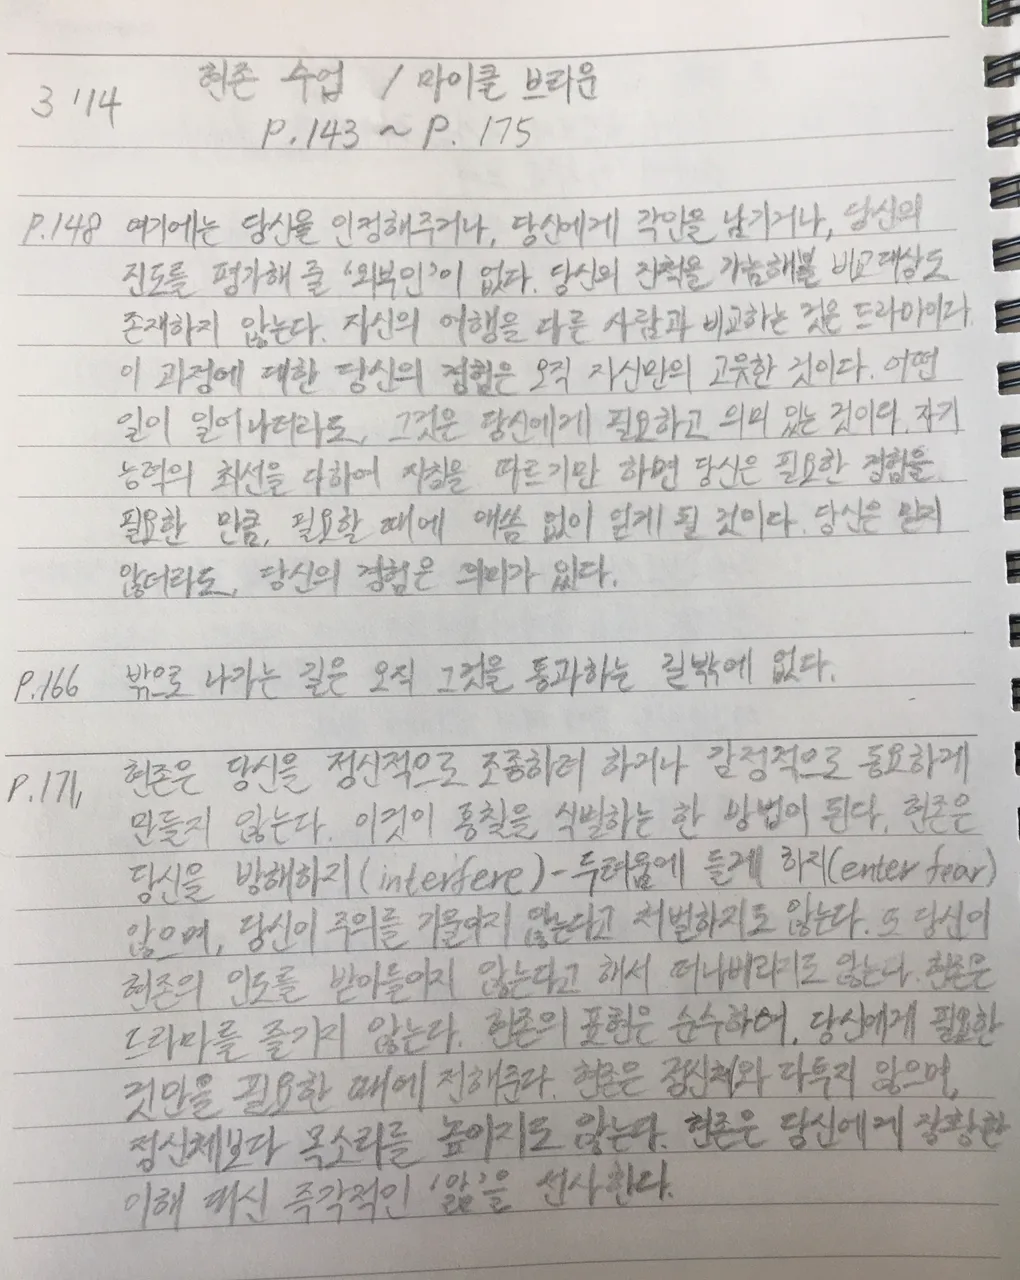 3 '14 현존 수업 / 마이클 브라운
P.143 ~ P. 175
P.148 여기에는 당신을 인정해주거나, 당신에게 각인을 남기거나, 당신의
진도를 평가해 줄 '외부인'이 없다. 당신의 진척을 가늠해볼 비교대상도
존재하지 않는다. 자신의 여행을 다른 사람과 비교하는 것은 드라마이다.
이 과정에 대한 당신의 경험은 오직 자신만의 고유한 것이다. 어떤
일이 일어나더라도, 그것은 당신에게 필요하고 의미 있는 것이다. 자기
능력의 최선을 다하여 지침을 따르기만 하면 당신은 필요한 경험을
필요한 만큼, 필요할 때에 애씀 없이 얻게 될 것이다. 당신은 믿지
않더라도, 당신의 경험은 의미가 있다.
P.166 밖으로 나가는 길은 오직 그것을 통과하는 길밖에 없다.
P.171, 현존은 당신을 정신적으로 조종하려 하거나 감정적으로 동요하게
만들지 않는다. 이것이 통찰을 식별하는 한 방법이 된다. 현존은
당신을 방해하지(interfere)-두려움에 들게 하지(enter fear)
않으며, 당신이 주의를 기울이지 않는다고 처벌하지도 않는다. 또 당신이
현존의 인도를 받아들이지 않는다고 해서 떠나버리지도 않는다. 현존은
드라마를 즐기지 않는다. 현존의 표현은 순수하여, 당신에게 필요한
것만을 필요한 때에 전해준다. 현존은 정신체와 다투지 않으며,
정신체보다 목소리를 높이지도 않는다. 현존은 당신에게 장황한
이해 대신 즉각적인 '앎'을 선사한다.